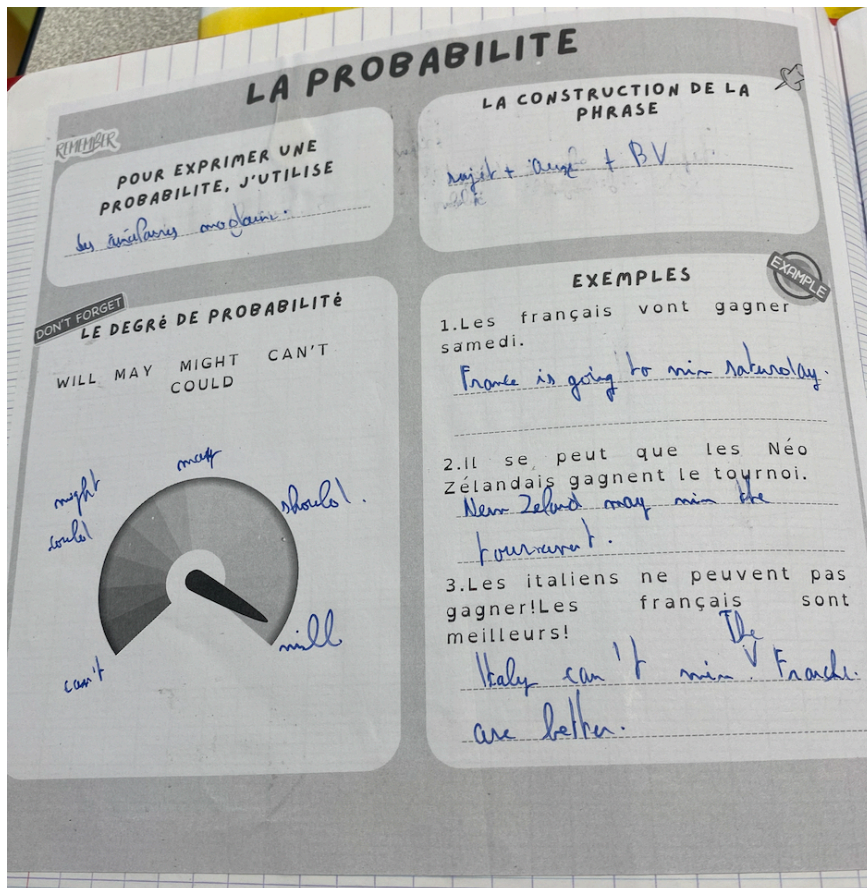 LA PROBABILITE
REMEMBER
POUR EXPRIMER UNE
PROBABILITE, J'UTILISE
les modaux.
LA CONSTRUCTION DE LA
PHRASE
sujet + aux + BV
DON'T FORGET
LE DEGRé DE PROBABILITé
WILL MAY MIGHT CAN'T
COULD
may
might
should.
could
will
can't
EXEMPLES
EXAMPLE
1.Les français vont gagner
samedi.
France is going to win saturday.
2.Il se peut que les Néo
Zélandais gagnent le tournoi.
New Zeland may win the
3.Les italiens ne peuvent pas
gagner!Les français sont
meilleurs!
The
Italy can't win.
are better.